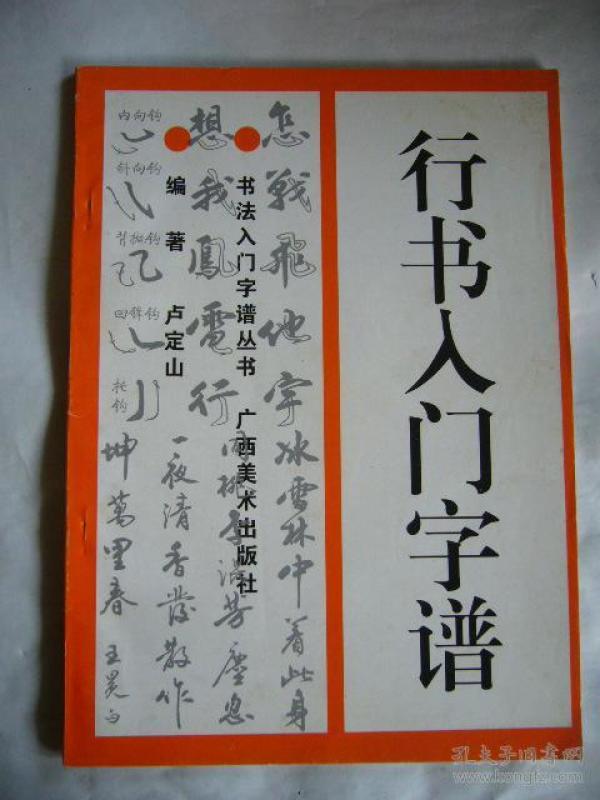 行书入门字谱
书法入门字谱丛书 广西美术出版社
编著 卢定山
怎戰飛他宇
冰雪林中著此身
想我鳳電行
同桃李混芳塵忽
一夜清香發散作
坤萬里春 王冕句
内向钩
斜向钩
背抛钩
回锋钩
托钩
孔夫子旧书网
www.kongfz.com